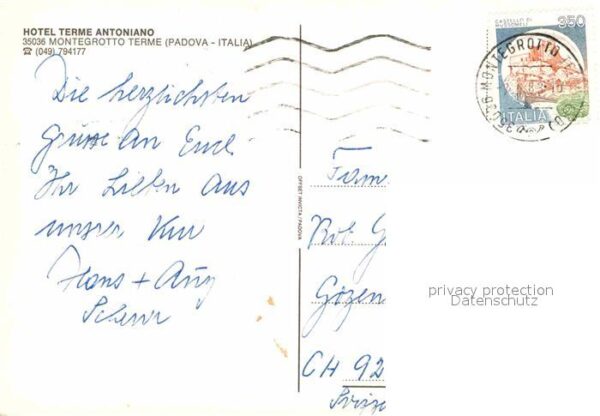 HOTEL TERME ANTONIANO
35036 MONTEGROTTO TERME (PADOVA - ITALIA)
☎ (049) 794177
Die herzlichsten
Grüsse an Euch
Ihr Lieben aus
unserer Kur
Hans +
CASTELLO DI MUSSOMELI
350
ITALIA
MONTEGROTTO
OFFSET INVICTA / PADOVA
Fam
Rob. G
Gözen
CH 92
privacy protection
Datenschutz